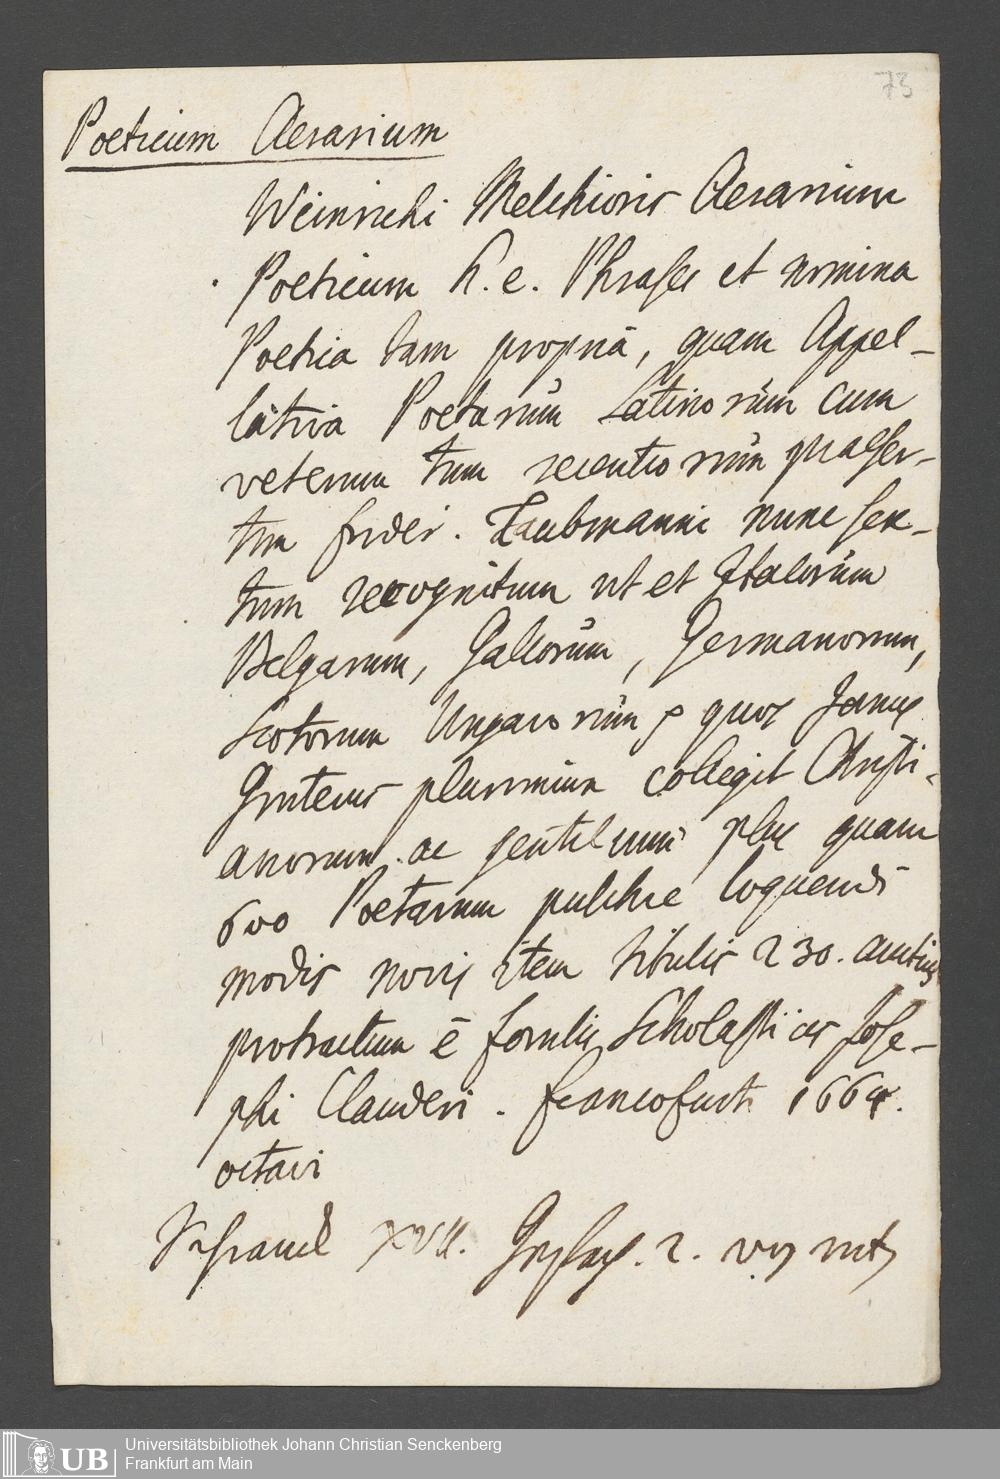 73
Poeticum Aerarium
Weinrichi Melchioris Aerarium
Poeticum h. e. Phrases et nomina
Poetica tam propria, quam Appel-
lativa Poetarum Latinorum cum
veterum tum recentiorum praeser-
tim frider. Taubmanni nunc sex-
tum recognitum ut et Italorum
Belgarum, Gallorum, Germanorum,
Scotorum Ungarorum quos Janus
Gruterus plurimum collegit Christi-
anorum ac gentilium plus quam
600 Poetarum pulchre loquendi
modis novis item titulis 230. auctius
protractum è forulis Scholasticis Jose-
phi Clauderi. francofurti 1664.
octavi
XVII. 2.
UB
Universitätsbibliothek Johann Christian Senckenberg
Frankfurt am Main